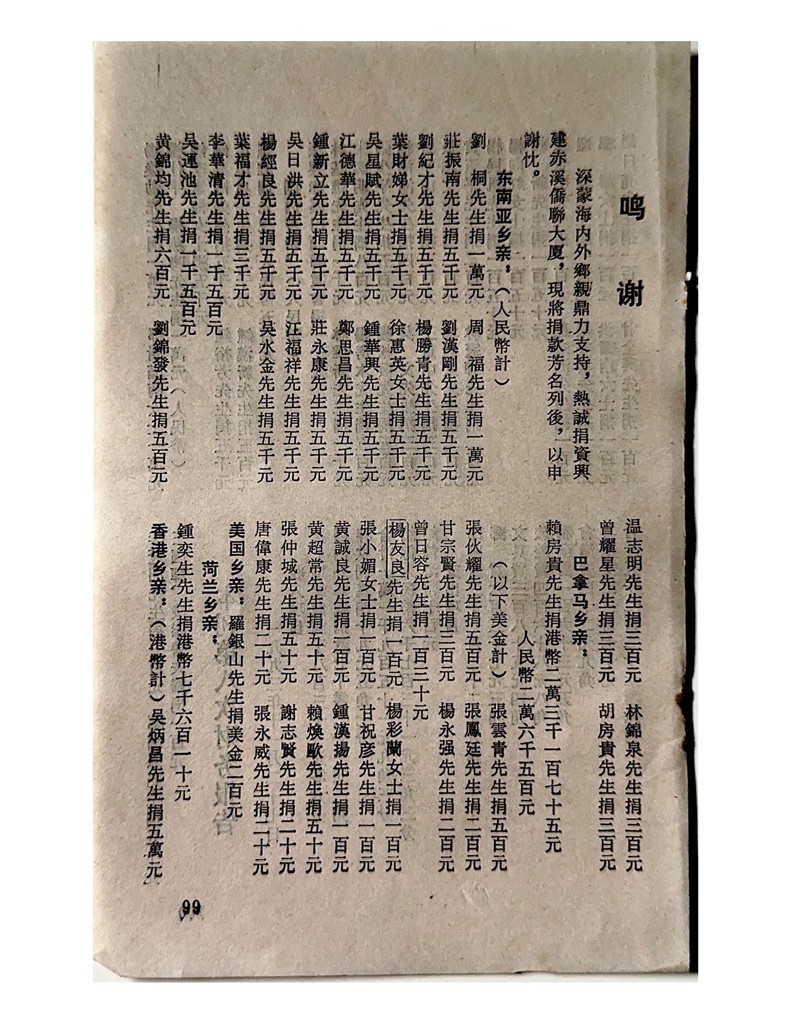 鸣谢
深蒙海内外鄉親鼎力支持，熱誠捐資興
建赤溪僑聯大厦，現將捐款芳名列後，以申
謝忱。
东南亚乡亲：（人民幣計）
劉　桐先生捐一萬元　周　福先生捐一萬元
莊振南先生捐五千元　劉漢剛先生捐五千元
劉紀才先生捐五千元　楊勝青先生捐五千元
葉財娣女士捐五千元　徐惠英女士捐五千元
吴星賦先生捐五千元　鍾華興先生捐五千元
江德華先生捐五千元　鄭思昌先生捐五千元
鍾新立先生捐五千元　莊永康先生捐五千元
吴日洪先生捐五千元　江福祥先生捐五千元
楊經良先生捐五千元　吴水金先生捐五千元
葉福才先生捐三千元
李華清先生捐一千五百元
吴運池先生捐一千五百元
黄錦均先生捐六百元　劉錦發先生捐五百元
温志明先生捐三百元　林錦泉先生捐三百元
曾耀星先生捐三百元　胡房貴先生捐三百元
巴拿马乡亲：
賴房貴先生捐港幣二萬三千一百七十五元
人民幣二萬六千五百元
（以下美金計）張雲青先生捐五百元
張伙耀先生捐五百元　張鳳廷先生捐二百元
甘宗賢先生捐三百元　楊永强先生捐二百元
曾日容先生捐一百三十元
楊友良先生捐一百元　楊彩蘭女士捐一百元
張小媚女士捐一百元　甘祝彦先生捐一百元
黄誠良先生捐一百元　鍾漢揚先生捐一百元
黄超常先生捐五十元　賴煥歐先生捐五十元
張仲城先生捐五十元　謝志賢先生捐二十元
唐偉康先生捐二十元　張永威先生捐二十元
美国乡亲：羅銀山先生捐美金二百元
荷兰乡亲：
鍾奕生先生捐港幣七千六百一十元
香港乡亲：（港幣計）吴炳昌先生捐五萬元
99